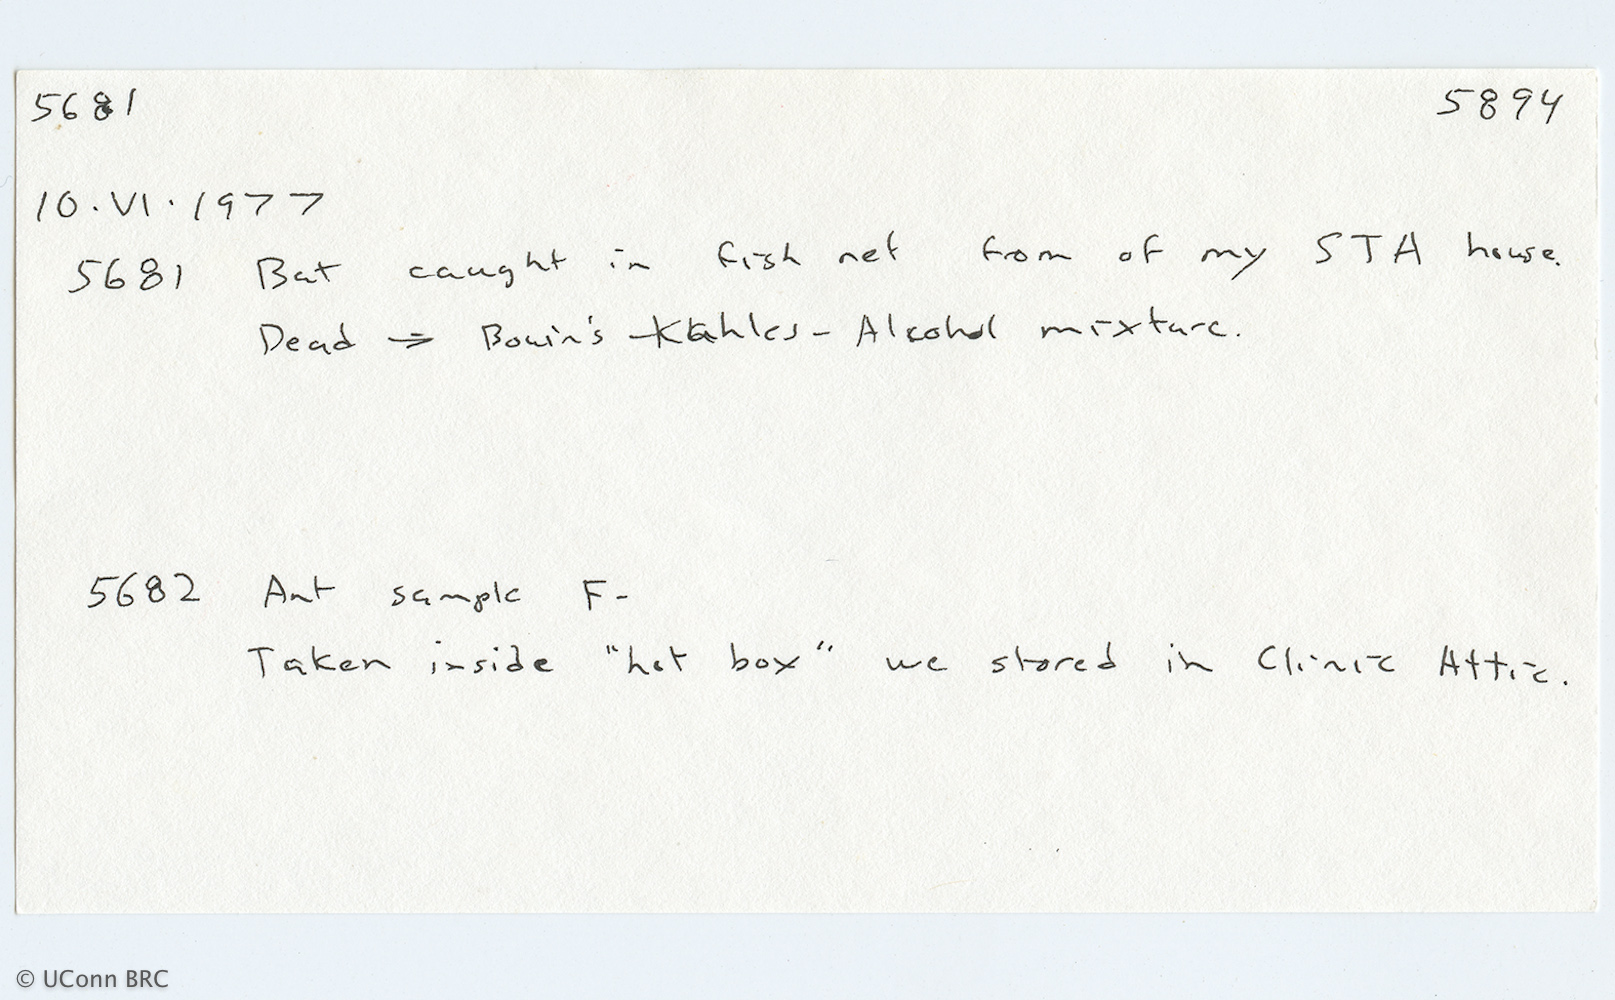 5681 5894
10.VI.1977
5681 Bat caught in fish net from of my STA house.
Dead ⇒ Bouin's - Kahles - Alcohol mixture.
5682 Ant sample F-
Taken inside "hot box" we stored in Clinic Attic.
© UConn BRC